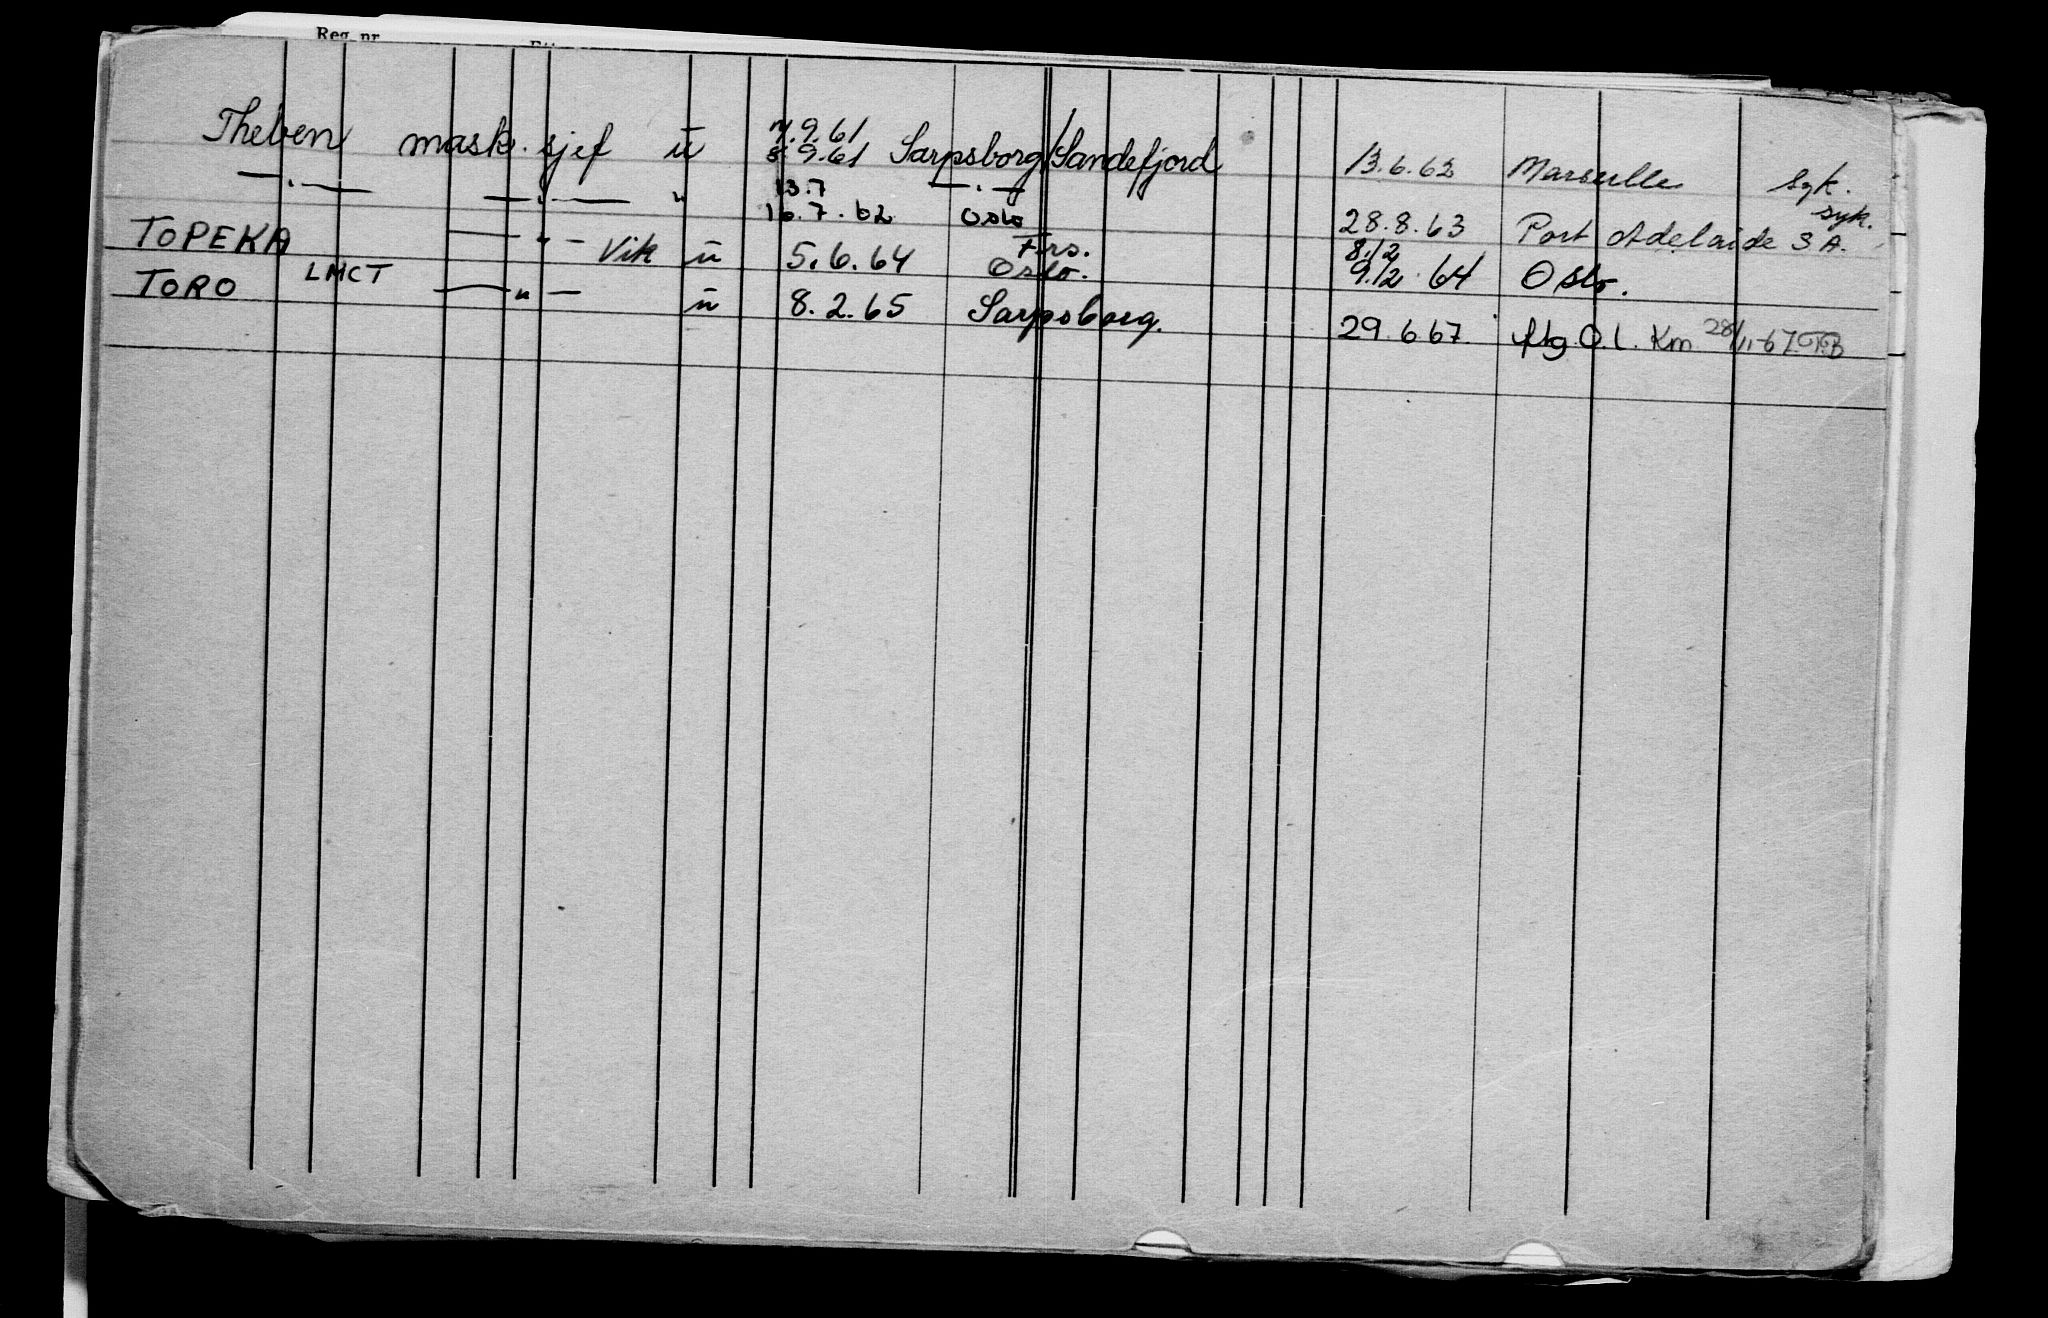 Reg. nr.
Theben mask. sjef ū 7.9.61 8.9.61 Sarpsborg/Sandefjord 13.6.62 Marseille syk.
—"— —"— " 13.7 16.7.62 —"— Oslo 28.8.63 Port Adelaide S A. syk.
TOPEKA —"— Vik ū 5.6.64 Frs. Oslo. 8/12 9/12 64 Oslo.
TORO LMCT —"— ū 8.2.65 Sarpsborg. 29.6.67. flg O.L. Km 28/11-67